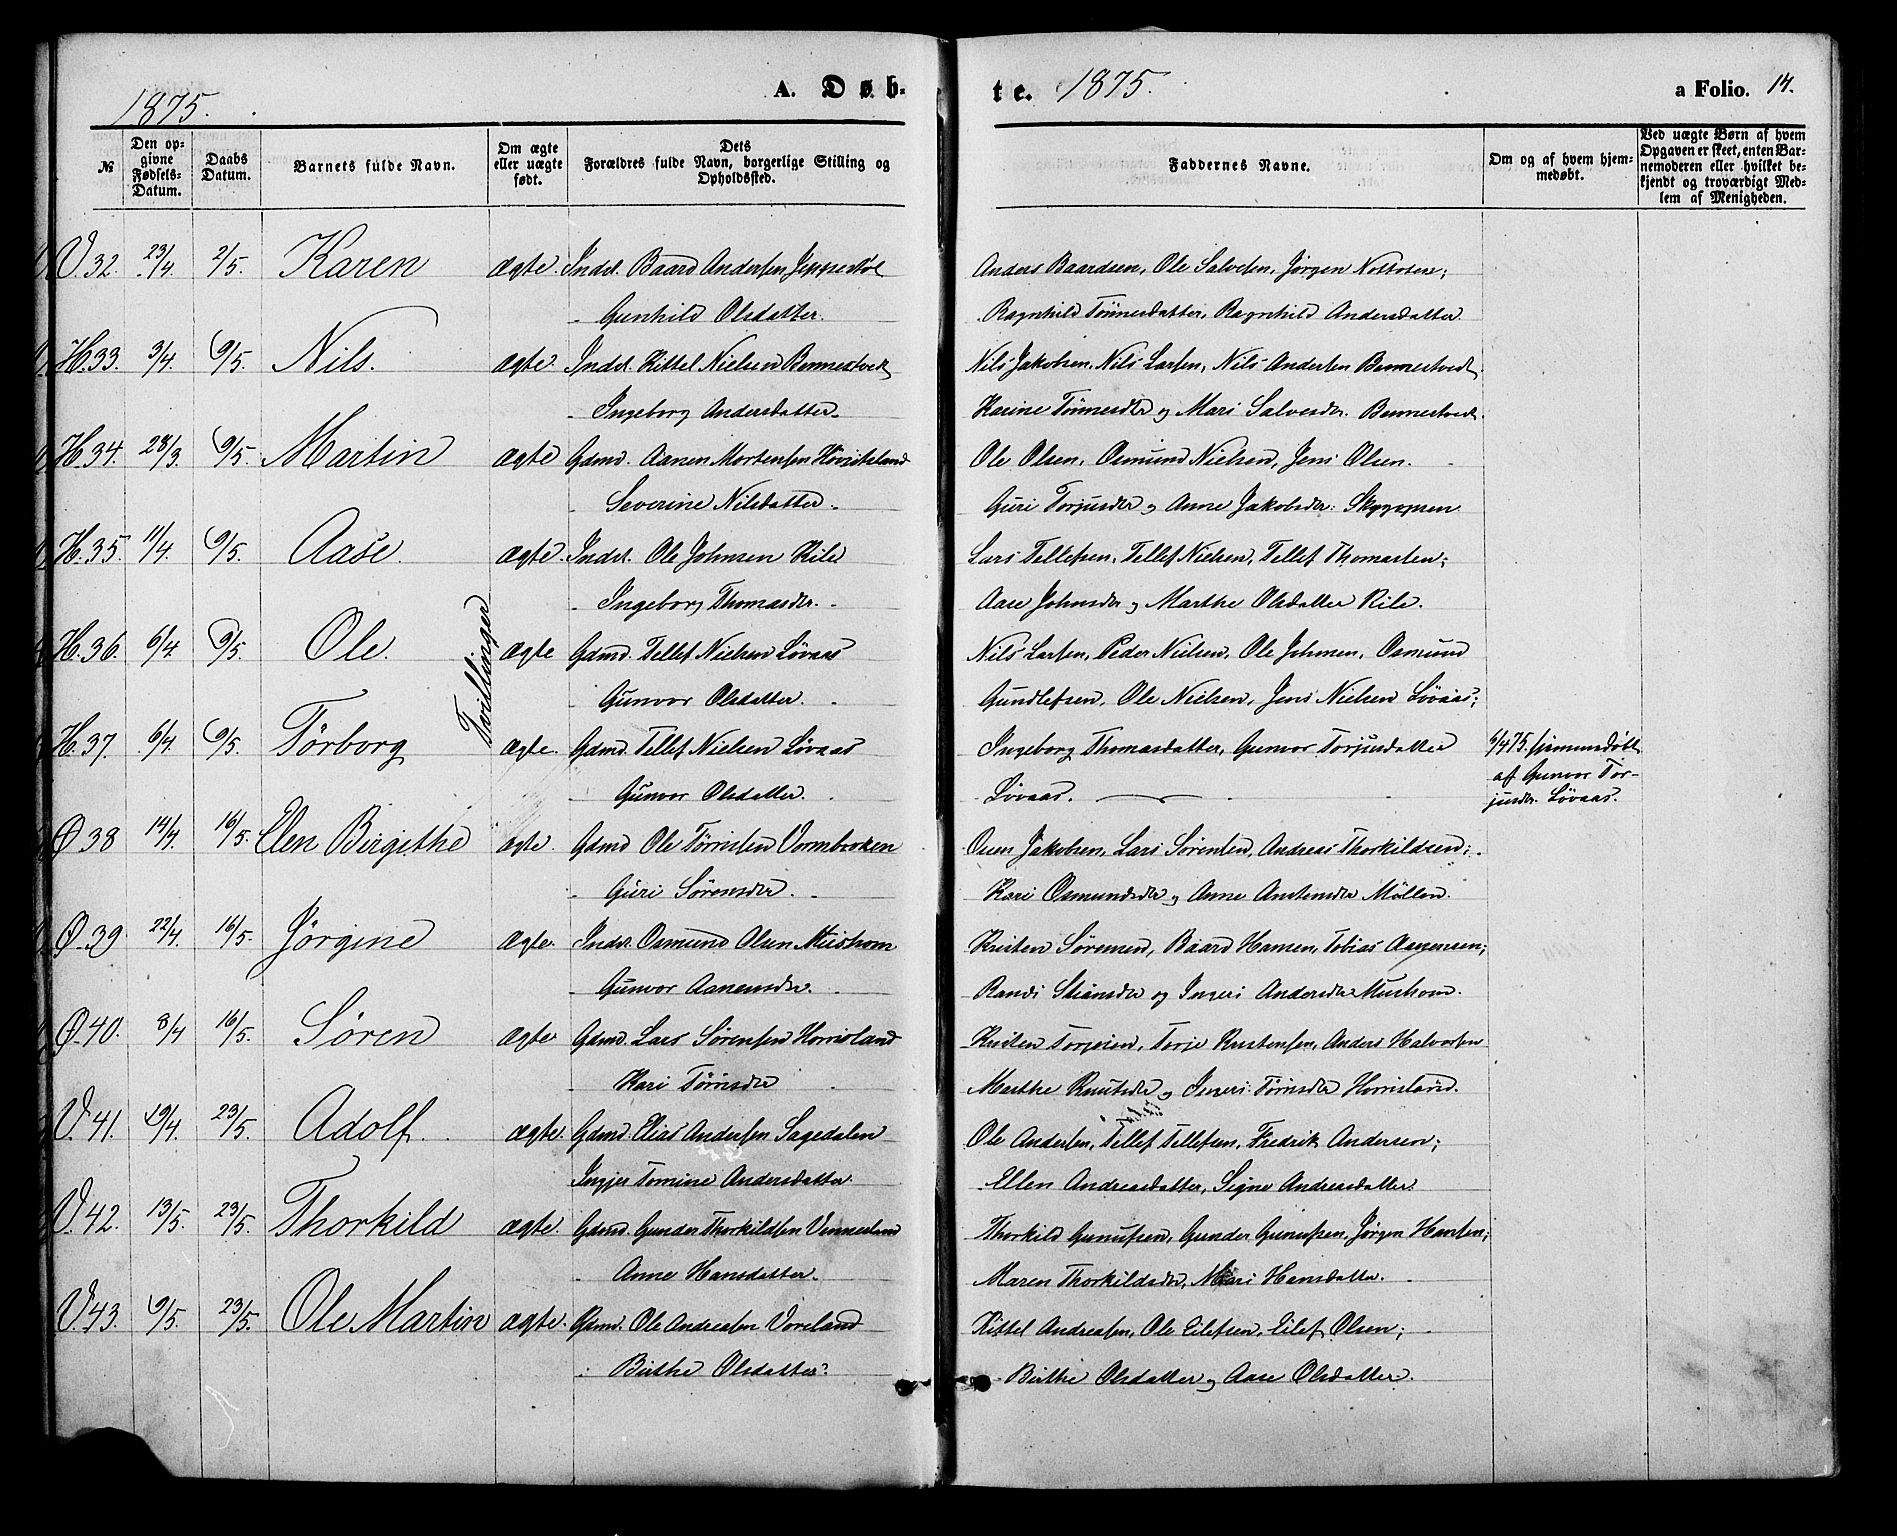 1875.
A. Døb-
te. 1875.
a Folio. 14.
№
Den op-
givne
Fødsels-
Datum.
Daabs
Datum.
Barnets fulde Navn.
Om ægte
eller uægte
født.
Dets
Forældres fulde Navn, borgerlige Stilling og
Opholdssted.
Faddernes Navne.
Om og af hvem hjem-
medøbt.
Ved uægte Børn af hvem
Opgaven er skeet, enten Bar-
nemoderen eller hvilket be-
kjendt og troværdigt Med-
lem af Menigheden.
V. 32. 23/4. 2/5. Karen ægte. Indst. Baard Andersen Jeppestøl
- Gunhild Olsdatter.
Anders Baardsen, Ole Salvesen, Jørgen
Ragnhild Tønnesdatter, Ragnhild Andersdatter.
H. 33. 3/4. 9/5. Nils. ægte. Indst. Kittel Nielsen Bennestvedt
- Ingeborg Andersdatter.
Nils Jakobsen, Nils Larsen, Nils Andersen Bennestvedt,
Karine Tønnesdtr og Mari Salvesdr. Bennestvedt.
H. 34. 28/3. 9/5. Martin ægte Gdmd. Aanen Mortensen
- Severine Nilsdatter.
Ole Olsen, Osmund Nielsen, Jens Olsen.
Guri Torjusdtr og Anne Jakobsdr.
H. 35. 11/4. 9/5. Aase. ægte. Indst. Ole Johnsen Rile
- Ingeborg Thomasdtr.
Lars Tellefsen, Tellef Nielsen, Tellef Thomassen;
Aase Johnsdtr og Marthe Olsdatter Rile.
Tvillinger
H. 36. 6/4. 9/5. Ole. ægte Gdmd. Tellef Nielsen Løvaas
- Gunvor Olsdatter.
Nils Larsen, Peder Nielsen, Ole Johnsen, Osmund
Gundlefsen, Ole Nielsen, Jens Nielsen Løvaas;
H. 37. 6/4. 9/5. Tørborg ægte. Gdmd. Tellef Nielsen Løvaas
- Gunvor Olsdatter.
Ingeborg Thomasdatter, Gunvor Torjusdatter
Løvaas.
6/4 75. hjemmedøbt
af Gunvor Tor-
jusdtr. Løvaas.
Ø 38 14/4. 16/5. Elen Birgithe ægte. Gdmd Ole Tørrisen Vormbrokken
- Guri Sørensdtr.
Osen Jakobsen, Lars Sørensen, Andreas Thorkildsen;
Kari Osmundsdtr og Anne Anstensdtr Møllen.
Ø. 39 22/4. 16/5. Jørgine ægte. Indst. Osmund Olsen Mushom
- Gunvor Aanensdtr.
Kristen Sørensen, Baard Hansen, Tobias Aanensen;
Randi og Ingeri Andersdtr Mushom.
Ø. 40. 8/4 16/5. Søren ægte. Gdmd. Lars Sørensen Horrisland
- Kari Tørrisdtr
Kristen Torjesen, Torje Kristensen, Anders Halvorsen
Marthe Knutsdtr og Ingeri Tørrisdtr Horrisland.
V. 41. 19/4. 23/5. Adolf. ægte. Gdmd. Elias Andersen Sagedalen
Ingjer Tomine Andersdatter.
Ole Andersen, Tellef Tellefsen, Fredrik Andersen;
Ellen Andreasdatter, Signe Andreasdatter.
V. 42. 13/5. 23/5. Thorkild ægte. Gdmd. Gunder Thorkildsen Vennesland
- Anne Hansdatter.
Thorkild Gunufsen, Gunder Gunufsen, Jørgen Hansen;
Maren Thorkildsdtr, Mari Hansdatter.
V. 43. 9/5. 23/5. Ole Martin ægte. Gdmd. Ole Andreasen Voreland
- Birthe Olsdatter.
Kittel Andreasen, Ole Eilefsen, Eilef Olsen;
Birthe Olsdatter og Aase Olsdatter.